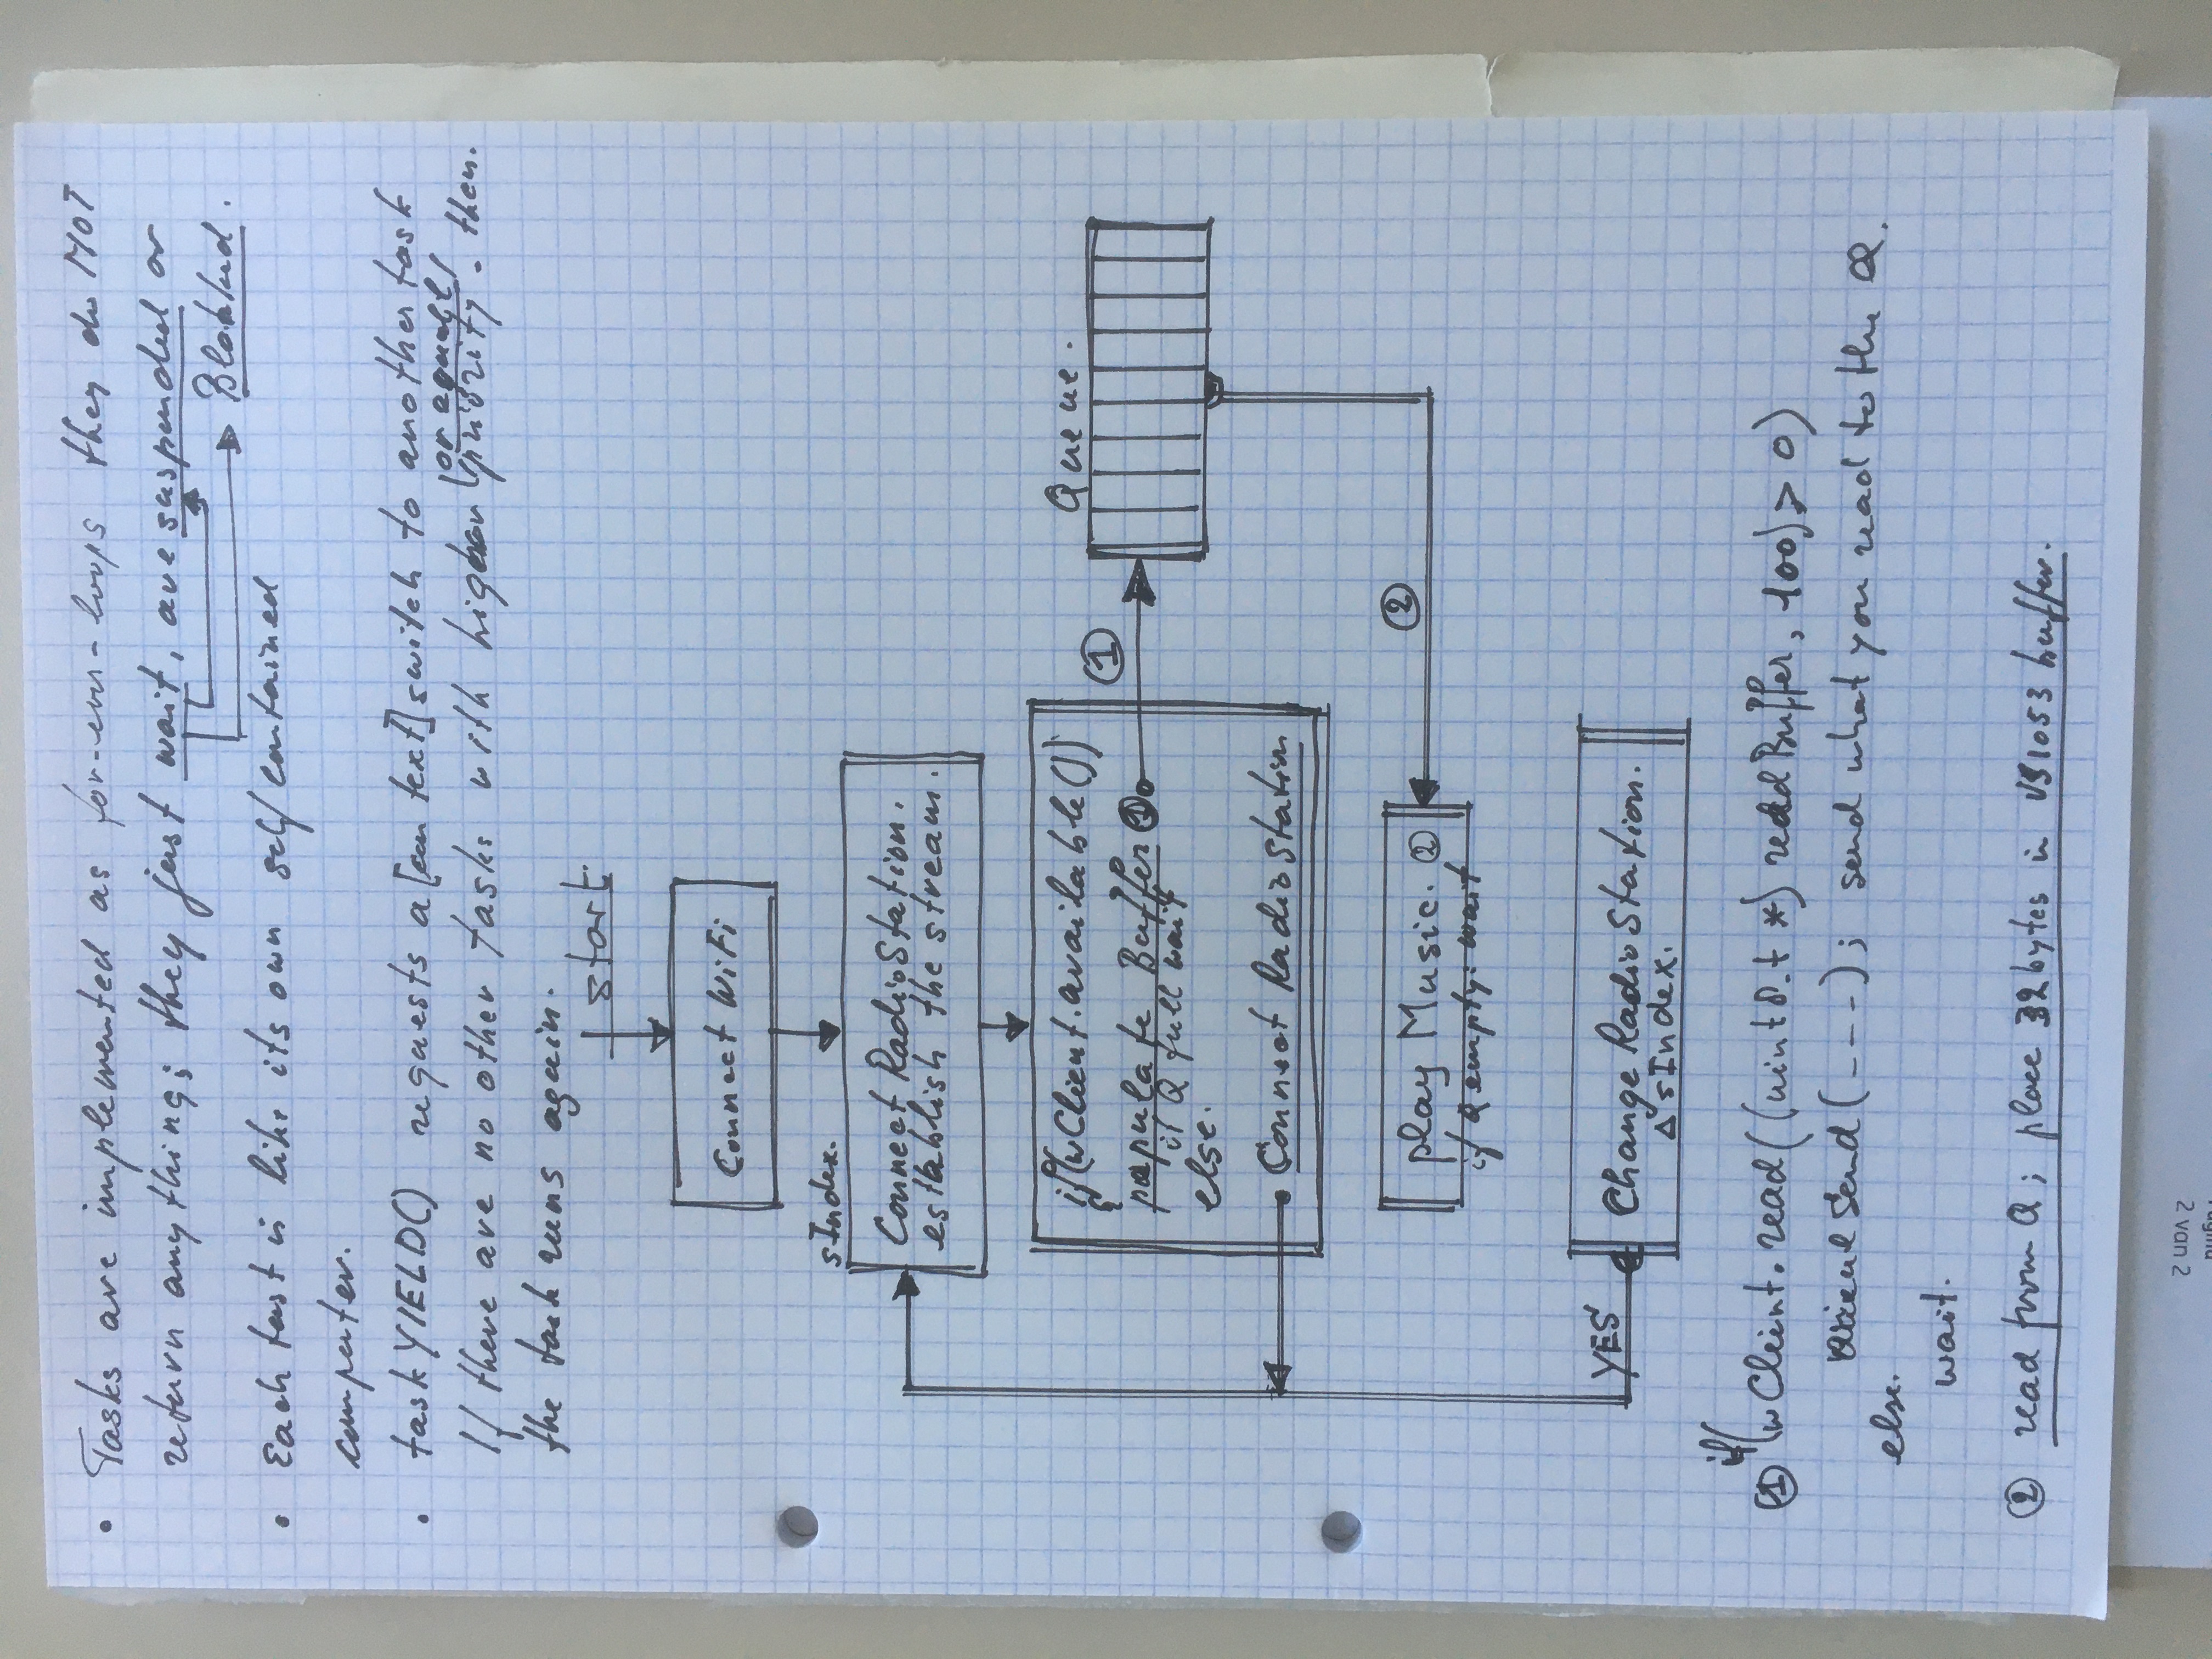 • Tasks are implemented as for-ever-loops they do NOT
return anything; they just wait, are suspended or
Blokked.
• Each tast is like its own self contained
computer.
• taskYIELD() requests a [con text] switch to another task
or equal
If there are no other tasks with higher priority. then.
the task runs again.
start
Connect WiFi
sIndex.
Connect RadioStation.
establish the stream.
if(wClient.available())
{
populate Buffer ①
if Q full wait
else.
Connect RadioStation
①
Queue.
play Music. ②
if Q empty: wait
②
YES
Change RadioStation.
Δ sIndex.
if(
① wCleint.read((uint8.t *) readBuffer, 100) > 0)
Send (---); send what you read to the Q.
else.
wait.
② read from Q; place 32 bytes in VS1053 buffer.
2 van 2
Pagina